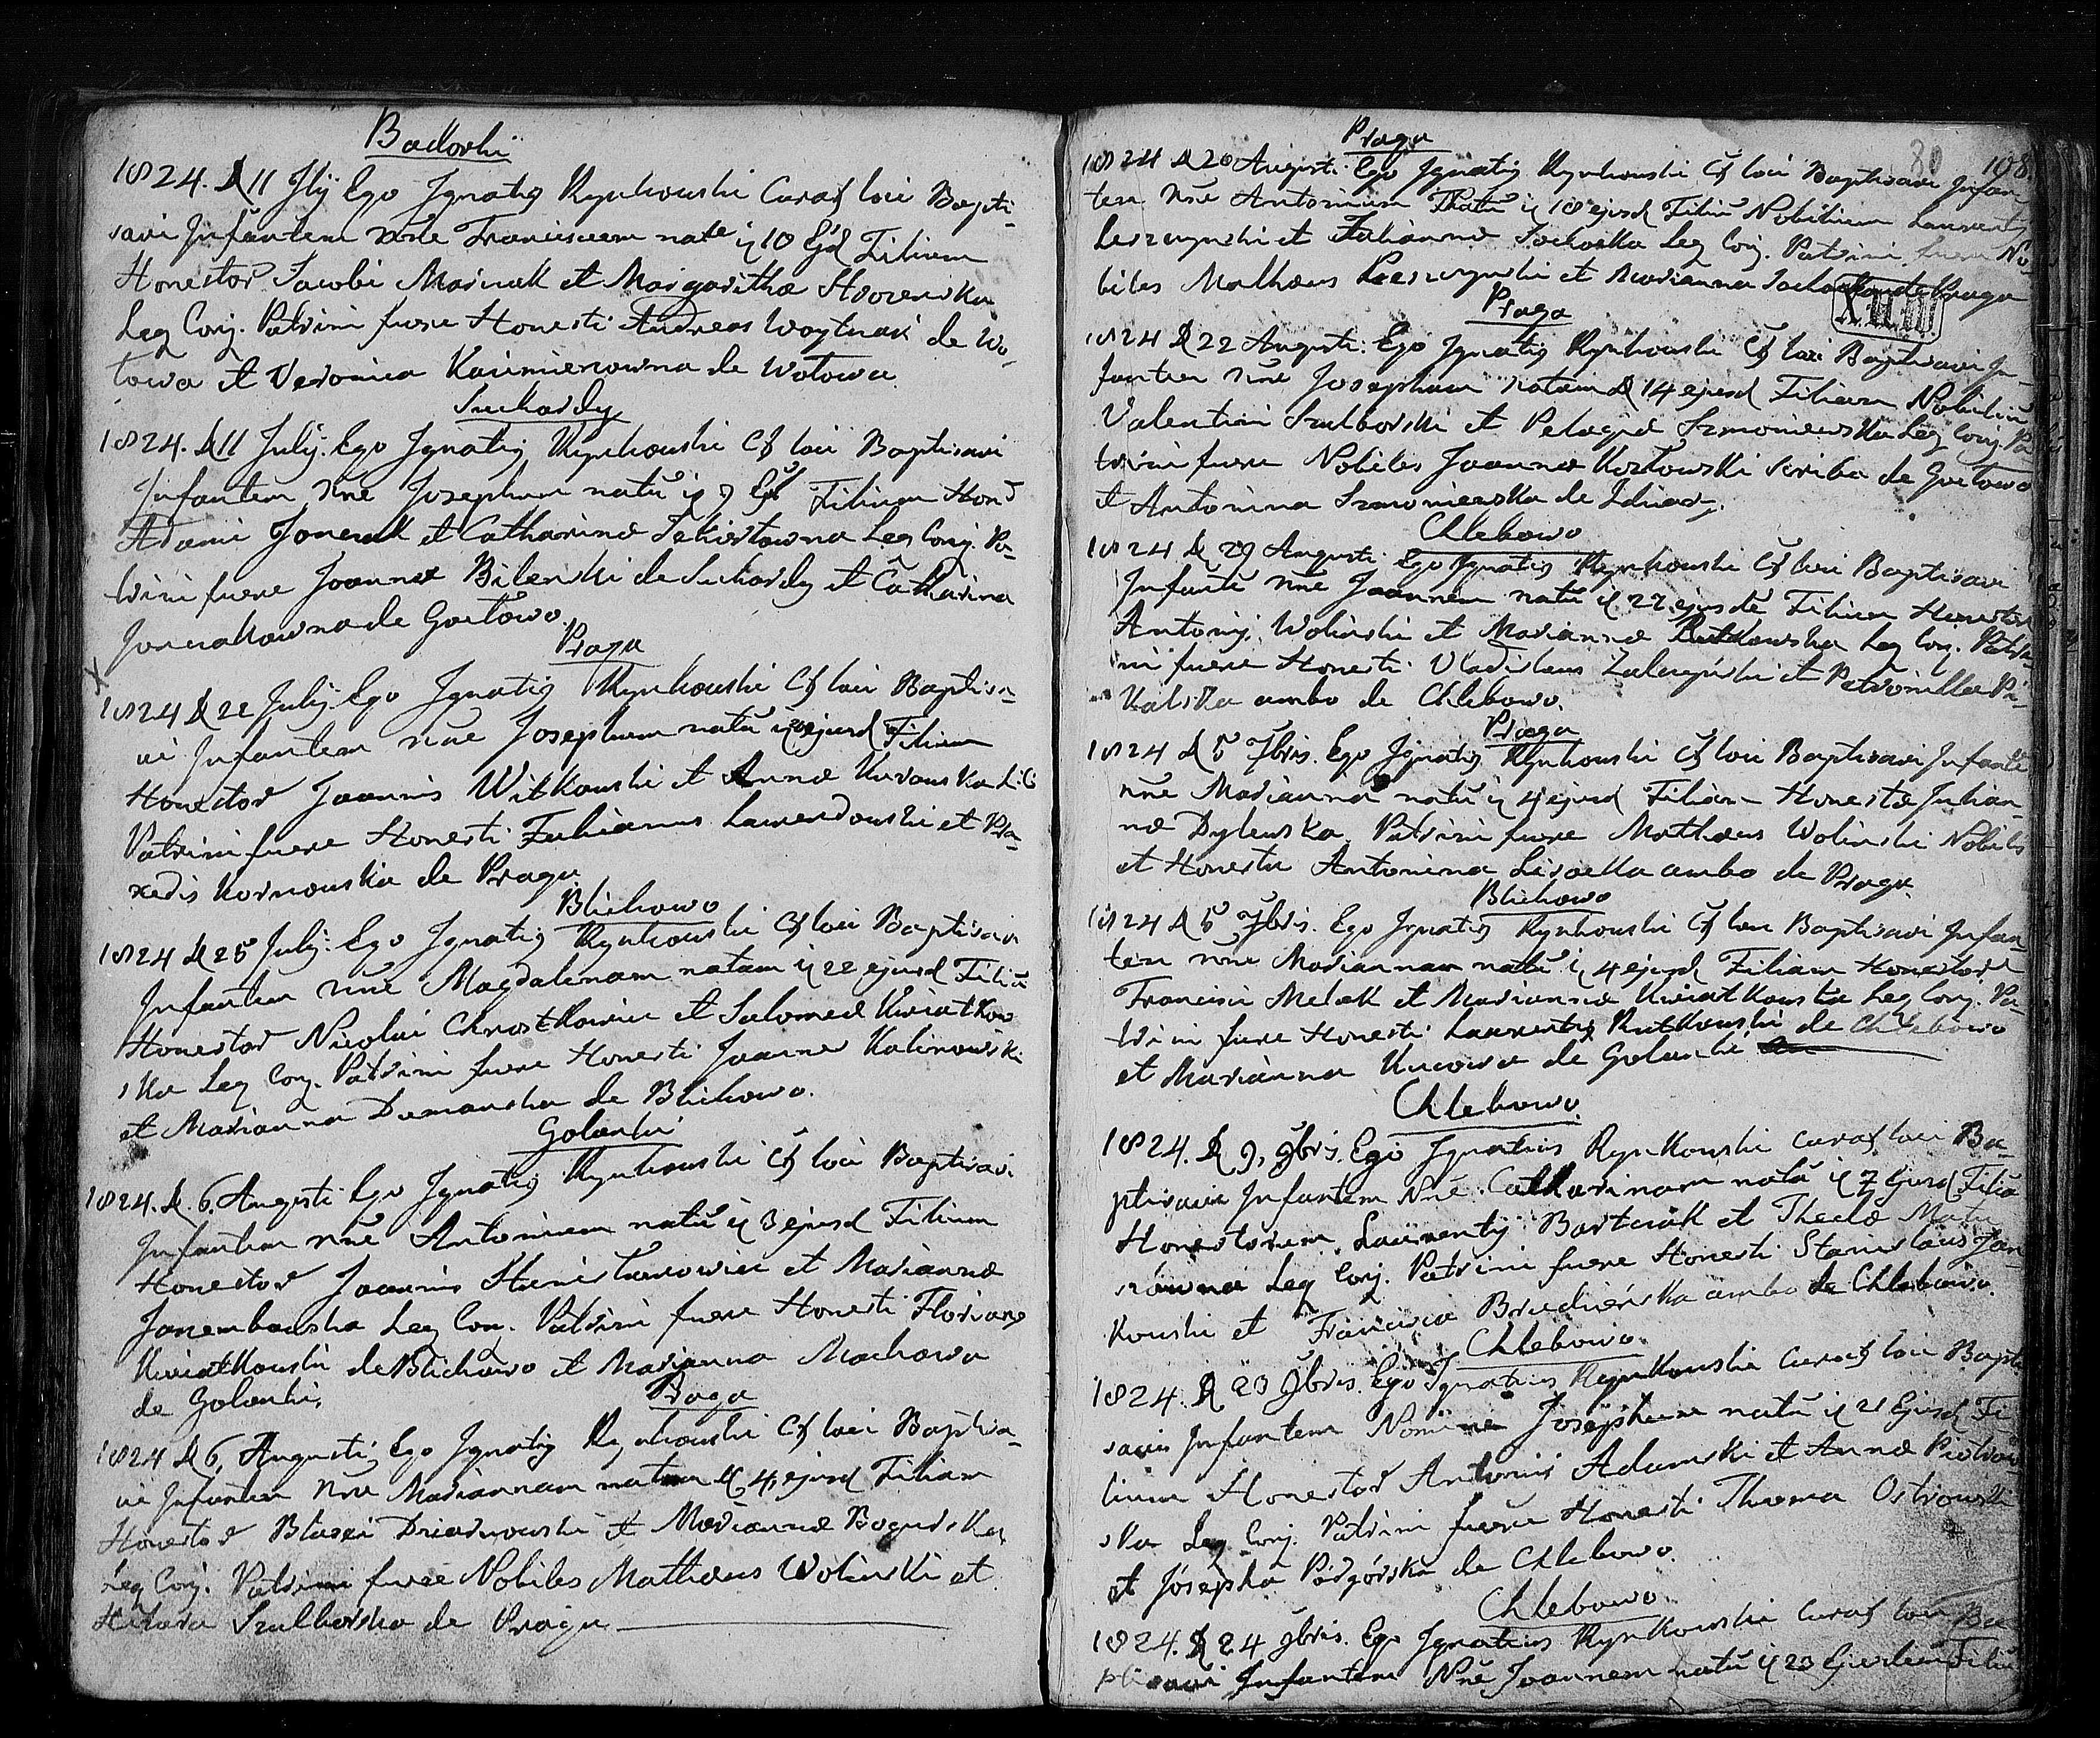 Badorki
1824. D 11 Jlij Ego Ignatig Rynkowski Curat loci Bapti-
savi Infantem Nne Franciscum nate ij 10 Ejd Filium
Honestor Jacobi Marciuk et Margaritha
Leg Conj. Patrini fuere Honesti Andreas Woytnak de Wo-
towa et Veronica Kazimierowna de Wotowa
Suchardy
1824. D 11 July. Ego Ignatig Rynkowski Ct loci Baptisavi
Infantem Nne Josephum natu ij 9 Ejd Filium Hond
Adami Jonczak et Catharinæ Leg Conj. Pa-
trini fuere Joannes Bilenski de Suchardy et Catharina
Jonczakowna de Goetowo.
Praga
X
1824 D 22 July. Ego Ignatig Rynkowski Ct loci Baptisa-
vi Infantem Nne Josephum natu ij 20 ejusd Filium
Honestor Joannis Witkowski et Annæ
Patrini fuere Honesti Fabianus Lawendowski et Pra-
xedis Kornowska de Praga
Blichowo
1824 D 25 July. Ego Ignatig Rynkowski Ct loci Baptisavi
Infantem Nne Magdalenam natam ij 22 ejusd Filiã
Honestor Nicolai Chrostkowicz et Salomeæ Kwiatkow
ska Leg Conj. Patrini fuere Honesti Joannes Kalinowski
et Marianna Dumanska de Blichowo.
Golanki
1824. D. 6. Augusti Ego Ignatig Rynkowski Ct loci Baptisavi
Infantem Nne Antonium natu ij 3 ejusd Filium
Honestor Joannis et Mariannæ
Leg Con. Patrini fuere Honesti Florians
Kwiatkowski de Blichowo et Marjanna Machowa
de Golanki.
Praga
1824 D 6, Augusti Ego Ignatig Rynkowski Ct loci Baptisa-
vi Infantem Nne Mariannam natam ij 4, ejusd Filiam
Honestor Blasei Dziarnowski et Mariannæ Bogurska
Leg Conj. Patrini fuere Nobiles Mathæus Wolinski et
Szulborska de Praga
80 108.
Praga
1824 D 20 Augusti. Ego Ignatig Rynkowski Ct loci Baptisavi Infan
tem Nne Antonium natu ij 18 ejusd Filiu Nobilium Laurenty
Leszczynski et Julianna Sochocka Leg Conj. Patrini fuere No-
biles Mathæus Leszczynski et Marianna de Praga
Praga
1824 D 22 Augusti. Ego Ignatig Rynkowski Ct loci Baptisavi In-
fantem Nne Josepham natam D 14 ejusd Filiam Nobiliu
Valentini Szulborski et Pelagiæ Szmoniewska Leg Conj. Pa
trini fuere Nobiles Joannæ Kozlowski scriba de Goetowo
et Antonina Szmoniewska de
Chlebowo
1824 D 29 Augusti Ego Ignatig Rynkowski Ct loci Baptisavi
Infante Nne Joannem natu ij 27 ejusde Filium Honestor
Antonij Wolinski et Mariannæ Rutkowska Leg Conj. Patri-
ni fuere Honesti Vladislaus et Petronilla Pi-
kalska ambo de Chlebowo.
Praga
1824 D 5 7bris. Ego Ignatig Rynkowski Ct loci Baptisavi Infante
Nne Marianna natu ij 4 ejusd Filiam Honestæ Julian-
næ Dylewska. Patrini fuere Mathæus Wolinski Nobilis
et Honesta Antonina ambo de Praga.
Blichowo
1824 D 5 7bris. Ego Ignatig Rynkowski Ct loci Baptisavi Infan
tem Nne Mariannam natu ij 4 ejusd Filiam Honestor
Francisci Melak et Mariannæ Kwiatkowska Leg Conj. Pa-
trini fuere Honesti Laurentig Rutkowski de Chlebowo
et Marianna Kucowa de Golanki
Chlebowo
1824. D 9, 9bris. Ego Ignatius Rynkowski Curat loci Ba-
ptisavi Infantem Nne Catharinam natã ij 7 Ejusd Filiã
Honestorum Laurentij Bartczak et Theclæ Matu
siówna Leg Conj. Patrini fuere Honesti Stanislaus Jan-
kowski et Francisca Brudzieńska ambo de Chlebowo.
Chlebowo.
1824. D 23 9bris. Ego Ignatius Rynkowski Curat loci Bapti
savi Infantem Nomine Josephum natu ij 21 Ejusd Fi
lium Honestor Antonii Adamski et Annæ Piotrow
ska Leg Conj. Patrini fuere Honesti Thoma Ostrowski
et Józepha Podgórska de Chlebowo.
Chlebowo.
1824. D 24 9bris. Ego Ignatius Rynkowski Curat loci Ba
ptisavi Infantem Nne Joannem natu ij 23 Ejusdem Filiu